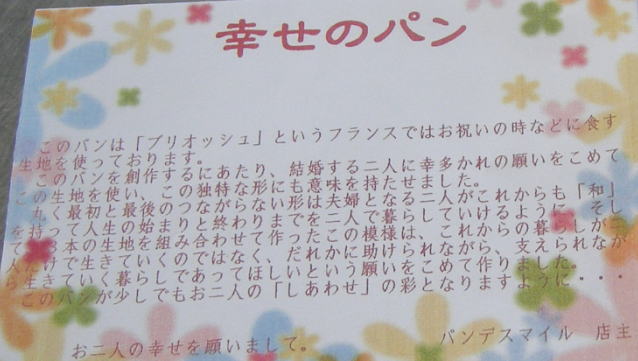 幸せのパン
このパンは「ブリオッシュ」というフランスではお祝いの時などに食す
生地を使っております。
このパンを創作するにあたり、結婚する二人に幸多かれの願いをこめて
この生地を使い、この独特な形にも意味を持たせました。
丸く最初と最後のつながらない形は夫婦となる二人がこれからも「和」
を持って人生の始まりと終わりまでを二人で暮らしていけるように、そし
て、3本の生地を組み合わせて作ったこの模様は、これからの暮らしが二
人だけで生きていくのではなく、だれかに助けられながら、支えられなが
ら生きていく暮らしであってほしいという願いをこめて作りました。
このパンが少しでもお二人の「しあわせ」の彩となりますように・・・
お二人の幸せを願いまして。
パンデスマイル 店主